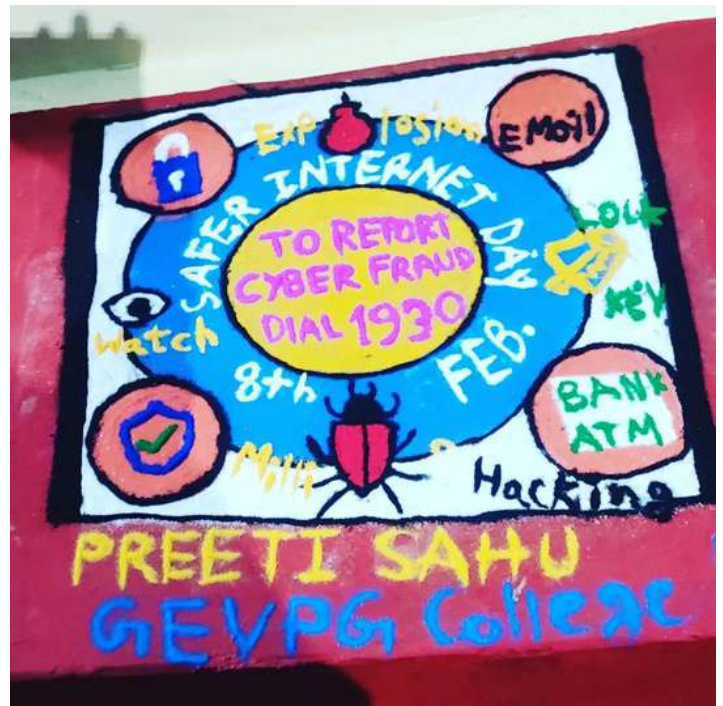 Explosion
EMail
SAFER INTERNET DAY
8th FEB.
TO REPORT
CYBER FRAUD
DIAL 1930
LOCK
KEY
Watch
BANK
ATM
Hacking
PREETI SAHU
GEVPG College